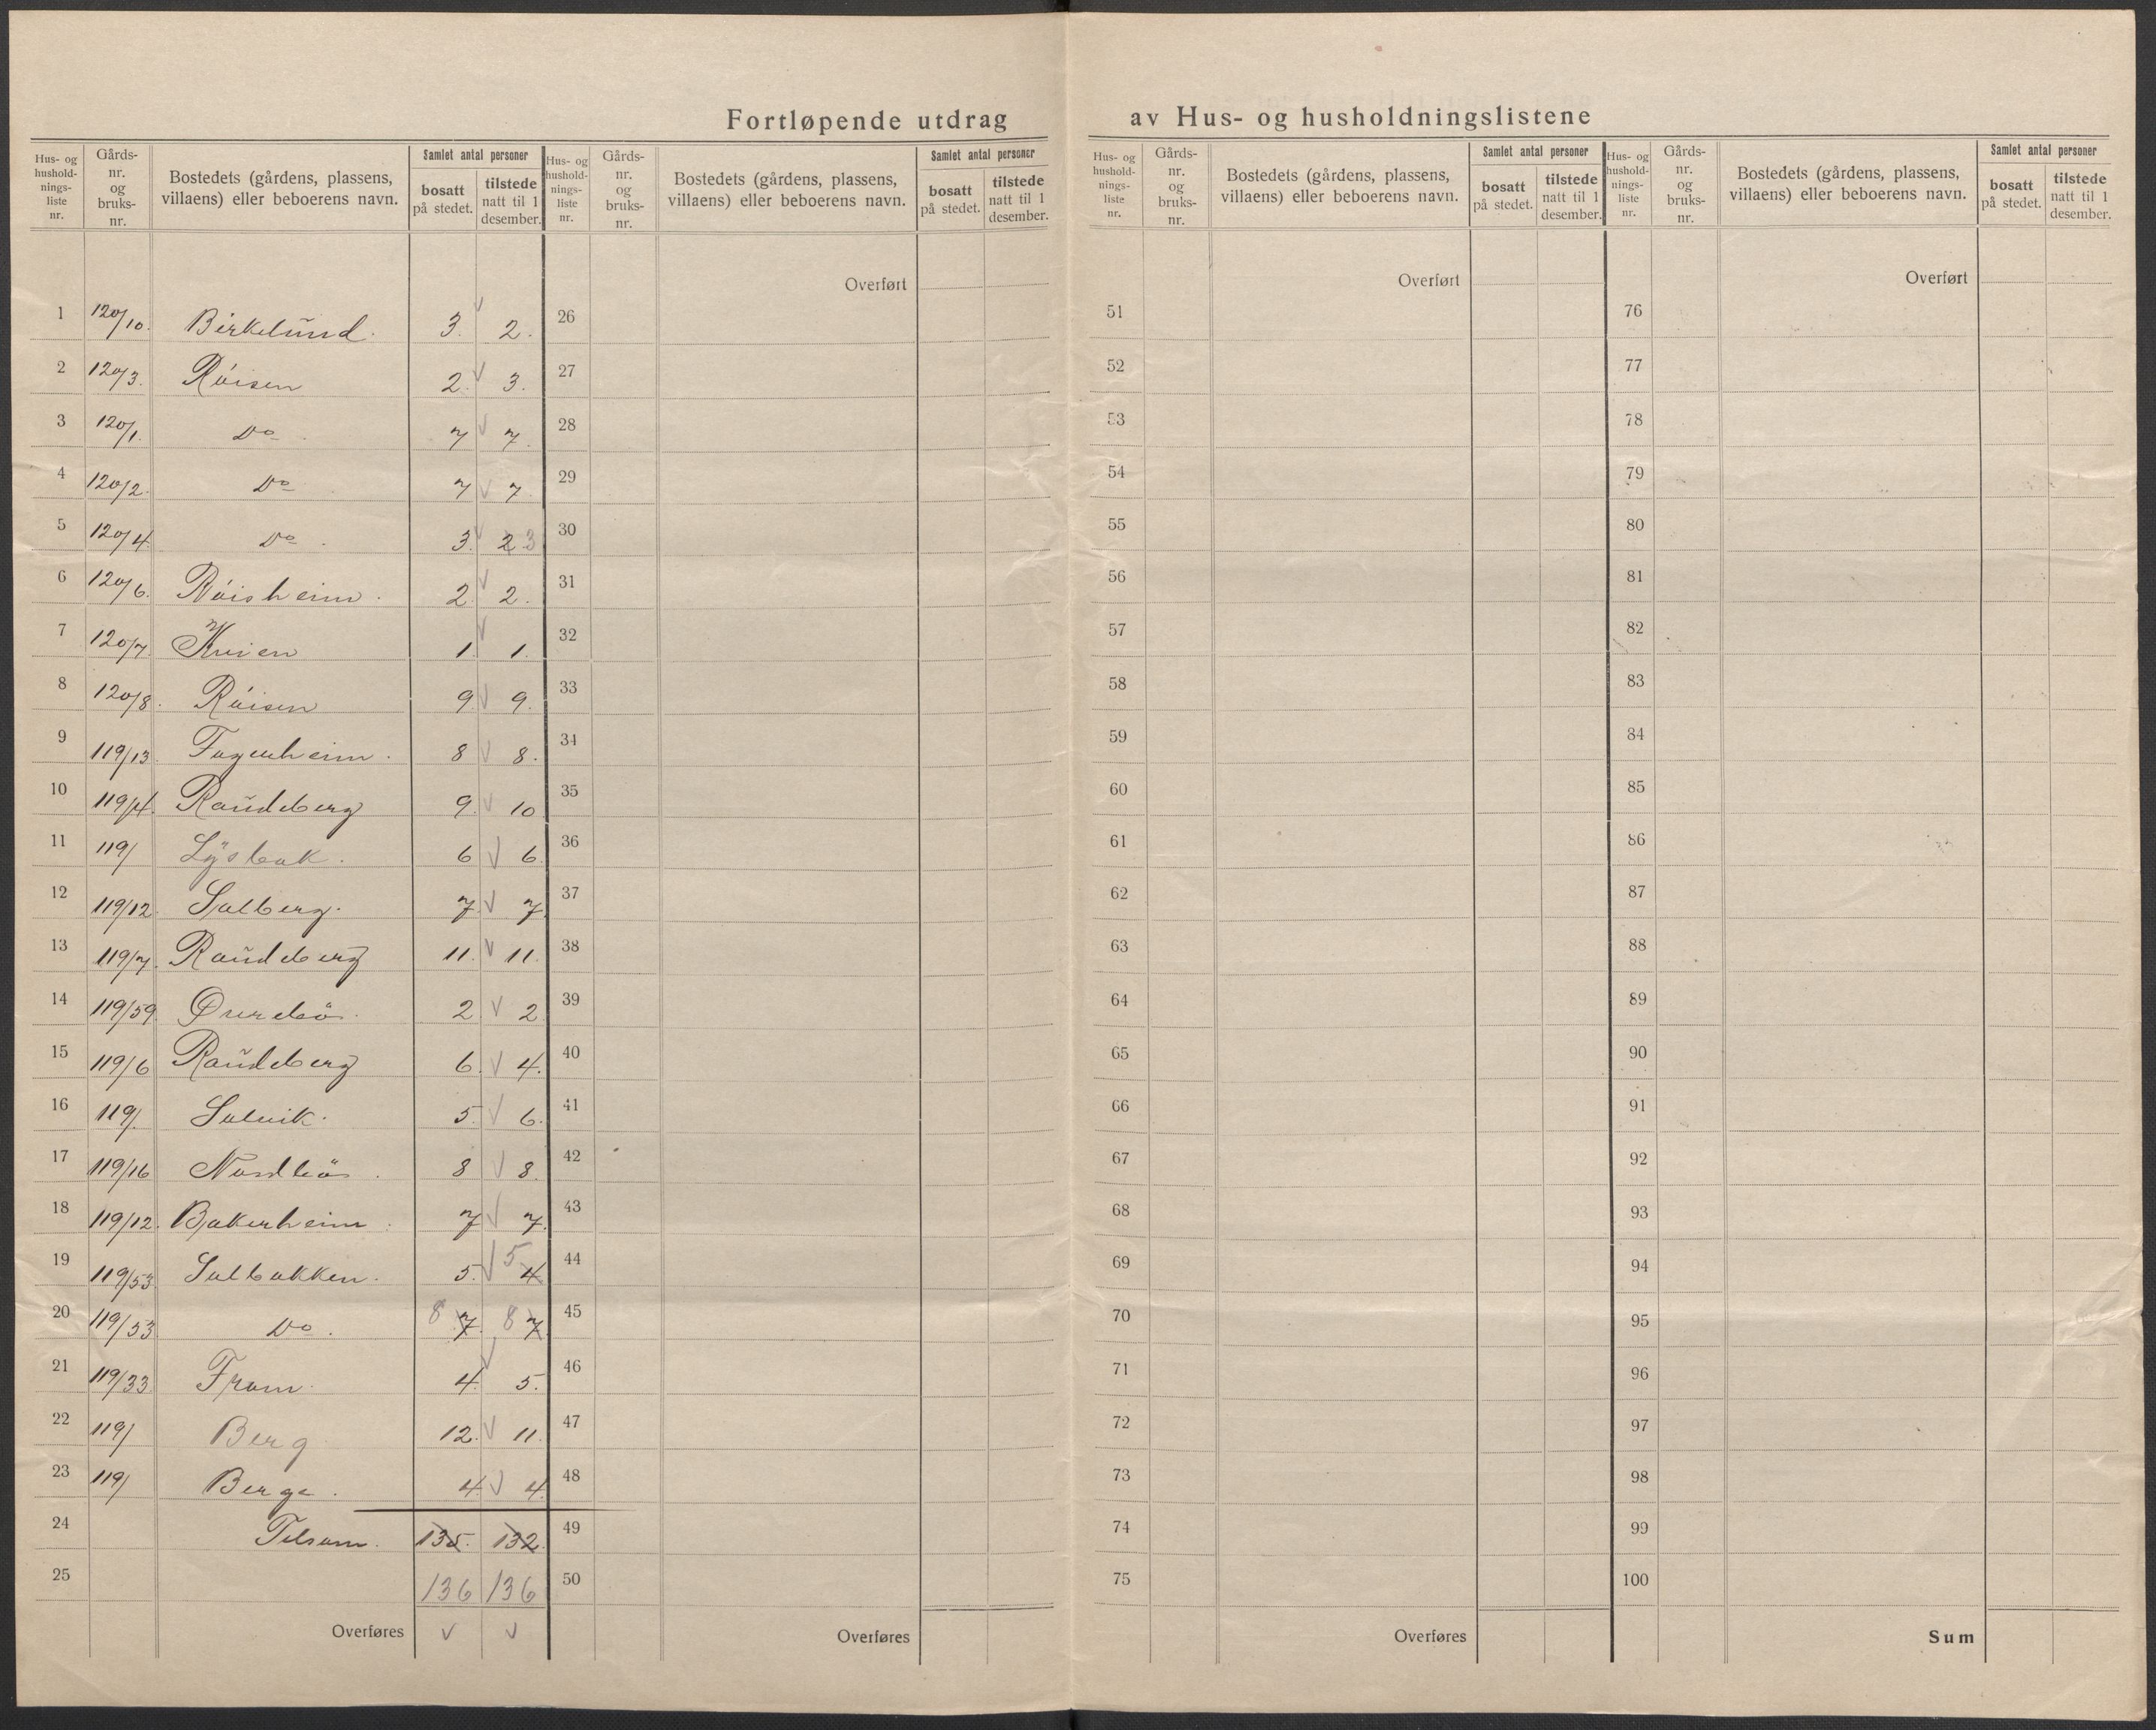 Fortløpende utdrag av Hus- og husholdningslistene
Hus- og hushold-nings-liste nr. Gårds-nr. og bruks-nr. Bostedets (gårdens, plassens, villaens) eller beboerens navn. Samlet antal personer bosatt på stedet. tilstede natt til 1 desember.
Hus- og hushold-nings-liste nr. Gårds-nr. og bruks-nr. Bostedets (gårdens, plassens, villaens) eller beboerens navn. Samlet antal personer bosatt på stedet. tilstede natt til 1 desember.
Hus- og hushold-nings-liste nr. Gårds-nr. og bruks-nr. Bostedets (gårdens, plassens, villaens) eller beboerens navn. Samlet antal personer bosatt på stedet. tilstede natt til 1 desember.
Hus- og hushold-nings-liste nr. Gårds-nr. og bruks-nr. Bostedets (gårdens, plassens, villaens) eller beboerens navn. Samlet antal personer bosatt på stedet. tilstede natt til 1 desember.
Overført Overført Overført
1 120/10. Birkelund. 3. 2. 26 51 76
2 120/3. Röisen 2. 3. 27 52 77
3 120/1. Do 7 7. 28 53 78
4 120/2. Do 7 7 29 54 79
5 120/4. Do. 3. 2 3 30 55 80
6 120/6. Röisheim. 2. 2. 31 56 81
7 120/7. Kvien 1. 1. 32 57 82
8 120/8. Röisen 9. 9. 33 58 83
9 119/13. Fagerheim. 8 8. 34 59 84
10 119/4. Randeberg 9. 10 35 60 85
11 119/ Lysbak. 6 6. 36 61 86
12 119/12. Solberg. 7. 7. 37 62 87
13 119/7. Randeberg 11. 11. 38 63 88
14 119/59. Øverebö. 2 2. 39 64 89
15 119/6 Randeberg 6. 4. 40 65 90
16 119/. Solvik. 5. 6. 41 66 91
17 119/16 Nordbö. 8 8. 42 67 92
18 119/12. Bakerheim. 7 7. 43 68 93
19 119/53. Solbakken. 5. 5 4 44 69 94
20 119/53 Do. 8 7. 8 7. 45 70 95
21 119/33. Fram. 4. 5. 46 71 96
22 119/ Berg 12. 11. 47 72 97
23 119/ Berge. 4. 4. 48 73 98
24 Tilsam. 135. 132. 49 74 99
25 136 136 50 75 100
Overføres Overføres Overføres Sum